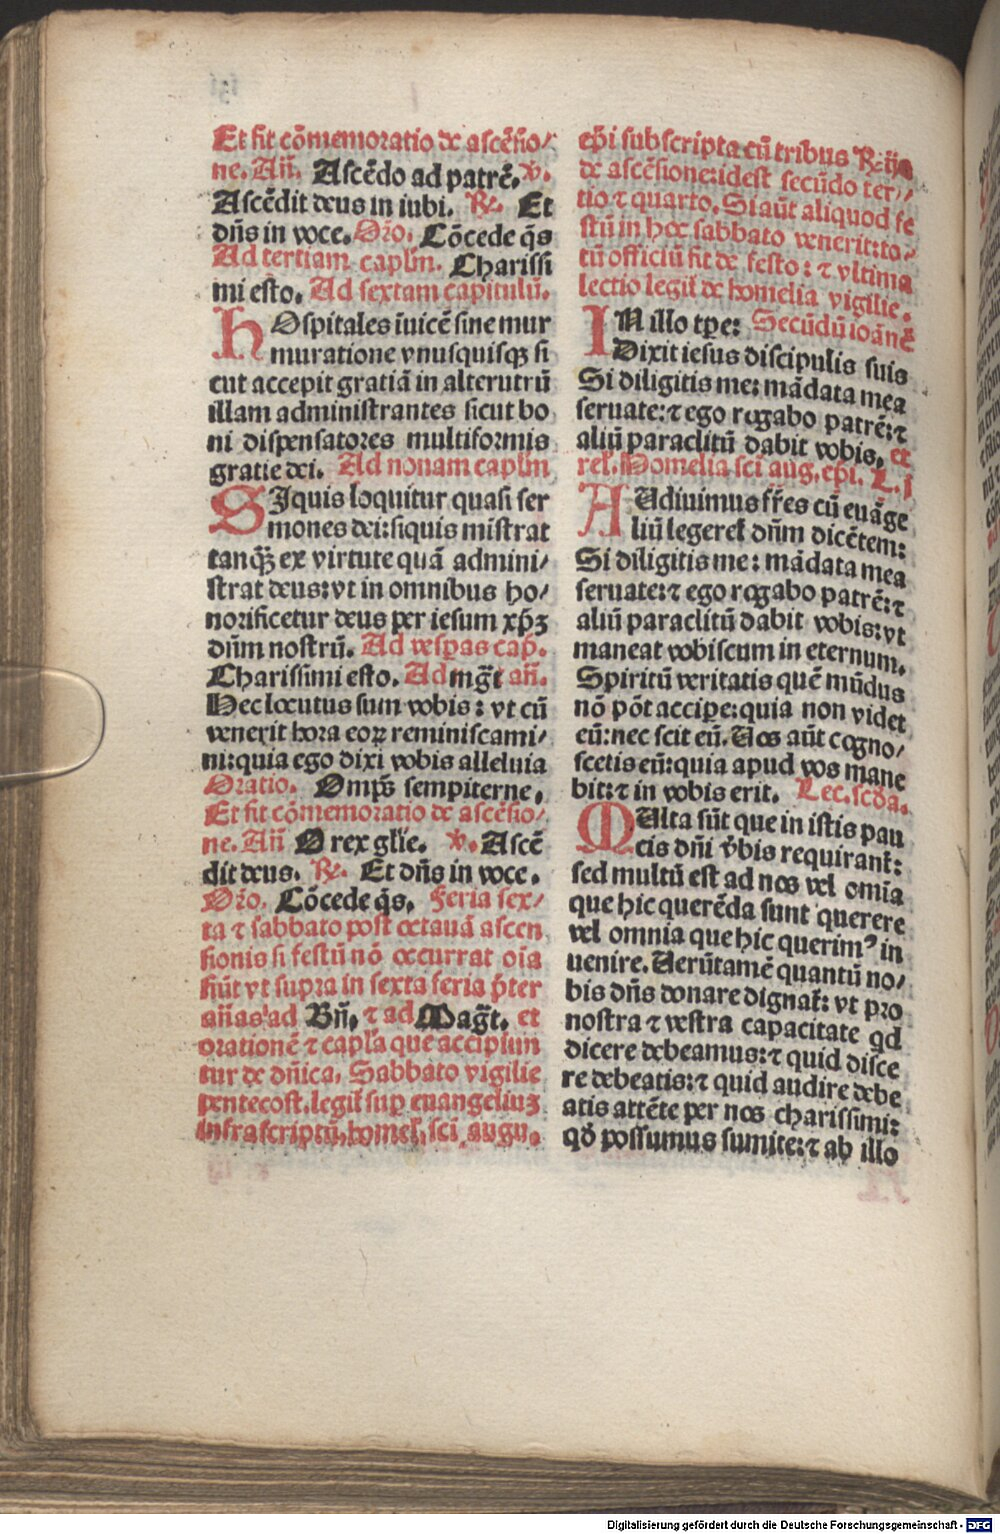 Et fit cōmemoratio de ascēsio/
ne. Añ. Ascēdo ad patrē. ℣.
Ascēdit deus in iubi. ℟. Et
dñs in voce. Oŕo. Cōcede q̄s
Ad tertiam caplm̄. Charissi
mi esto. Ad sextam capitulū.
HOspitales īuicē sine mur
muratione vnusquisqꝫ si
cut accepit gratiā in alterutrū
illam administrantes sicut bo
ni dispensatores multiformis
gratie dei. Ad nonam caplm̄
SIquis loquitur quasi ser
mones dei: siquis mīstrat
tanqꝫ̄ ex virtute quā admini/
strat deus: vt in omnibus ho/
norificetur deus per iesum xp̄ꝫ
dn̄m nostrū. Ad vesꝑas cap̄.
Charissimi esto. Ad mḡt añ.
Hec locutus sum vobis: vt cū
venerit hora eoꝝ reminiscami/
ni: quia ego dixi vobis alleluia
Oratio. Omp̄s sempiterne.
Et fit cōmemoratio de ascēsio/
ne. Añ O rex gl̄ie. ℣. Ascē
dit deus. ℟. Et dñs in voce.
Oŕo. Cōcede q̄s. Feria sex/
ta ⁊ sabbato post octauā ascen
sionis si festū nō occurrat oīa
fiūt vt supra in sexta feria p̄ter
añas ad Bñ. ⁊ ad Mag̅t. et
orationē ⁊ capl̄a que accipiun
tur de dñica. Sabbato vigilie
pentecost. legit̄ sup̄ euangeliuꝫ
infrascriptū, homel. sci augu.
ep̄i subscripta cū tribus ℟. ijs
de ascēsione: idest secūdo ter//
tio ⁊ quarto. Si aūt aliquod fe
stū in hoc sabbato venerit: to/
tū officiū fit de festo: ⁊ vltima
lectio legit̄ de homelia vigilie.
IN illo tp̄e: Secūdū ioānē
Dixit iesus discipulis suis
Si diligitis me: mādata mea
seruate: ⁊ ego rogabo patrē: ⁊
aliū paraclitū dabit vobis. et
rel. Homelia sci aug. ep̄i. L. j
AUdiuimus fr̄es cū euāge
liū legeret̄ dn̄m dicētem:
Si diligitis me: mādata mea
seruate: ⁊ ego rogabo patrē: ⁊
aliū paraclitū dabit vobis: vt
maneat vobiscum in eternum.
Spiritū veritatis quē mūdus
nō pōt accipe: quia non videt
eū: nec scit eū. Uos aūt cogno/
scetis eū: quia apud vos mane
bit: ⁊ in vobis erit. Lec. scda.
MUlta sūt que in istis pau
cis dñi v̄bis requirant̄:
sed multū est ad nos vel omīa
que hic querēda sunt querere
vel omnia que hic querimꝰ in
uenire. Uerūtamē quantū no/
bis dñs donare dignat̄: vt pro
nostra ⁊ vestra capacitate qd
dicere debeamus: ⁊ quid disce
re debeatis: ⁊ quid audire debe
atis attēte per nos charissimi:
qd̄ possumus sumite: ⁊ ab illo
Digitalisierung gefördert durch die Deutsche Forschungsgemeinschaft - DFG